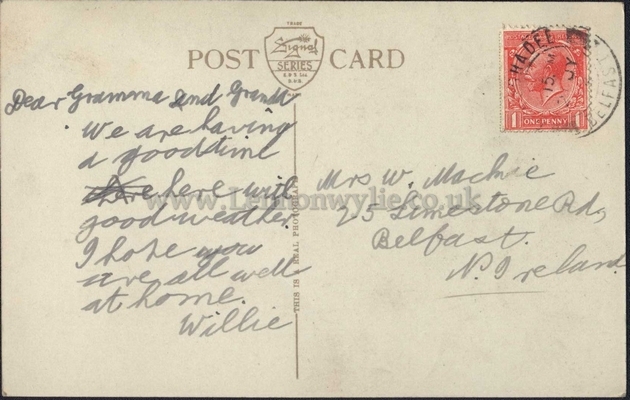 TRADE
Signal
SERIES
E.&S. Ltd.
DUB.
POST CARD
Dear Gramma and Granda
We are having
a good time
here here with
good weather
I hope you
are all well
at home.
Willie
THIS IS A REAL PHOTOGRAPH
Mrs W. Mackie
25 Limestone Rd,
Belfast.
N. Ireland.
1 ONE PENNY 1
BELFAST
www.Lennonwylie.co.uk